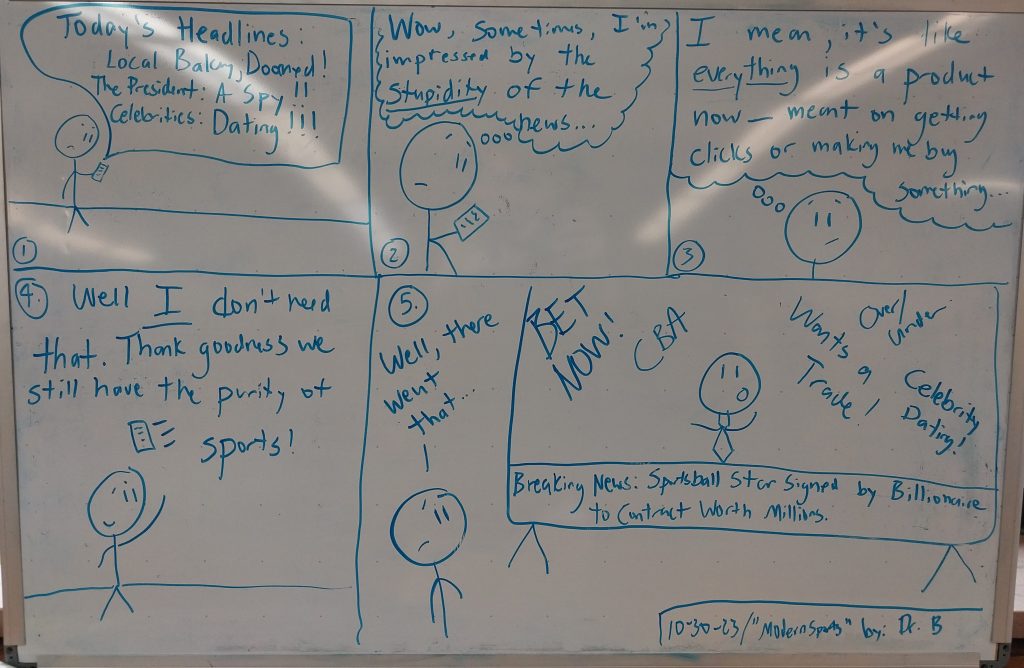 Today's Headlines:
Local Bakery, Doomed!
The President: A Spy!!
Celebrities: Dating!!!
①
Wow, sometimes, I'm
impressed by the
stupidity of the
news...
②
I mean, it's like
everything is a product
now— meant on getting
clicks or making me buy
something...
③
4. Well I don't need
that. Thank goodness we
still have the purity of
sports!
5.
Well, there
went
that...
BET
NOW!
CBA
Over/
under
Wants a
Trade!
Celebrity
Dating!
Breaking News: Sportsball Star Signed by Billionaire
to Contract Worth Millions.
10-30-23/"Modern Sports" by: Dr. B